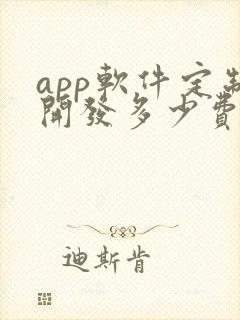 app軟件定制
開發多少費
迪斯肯